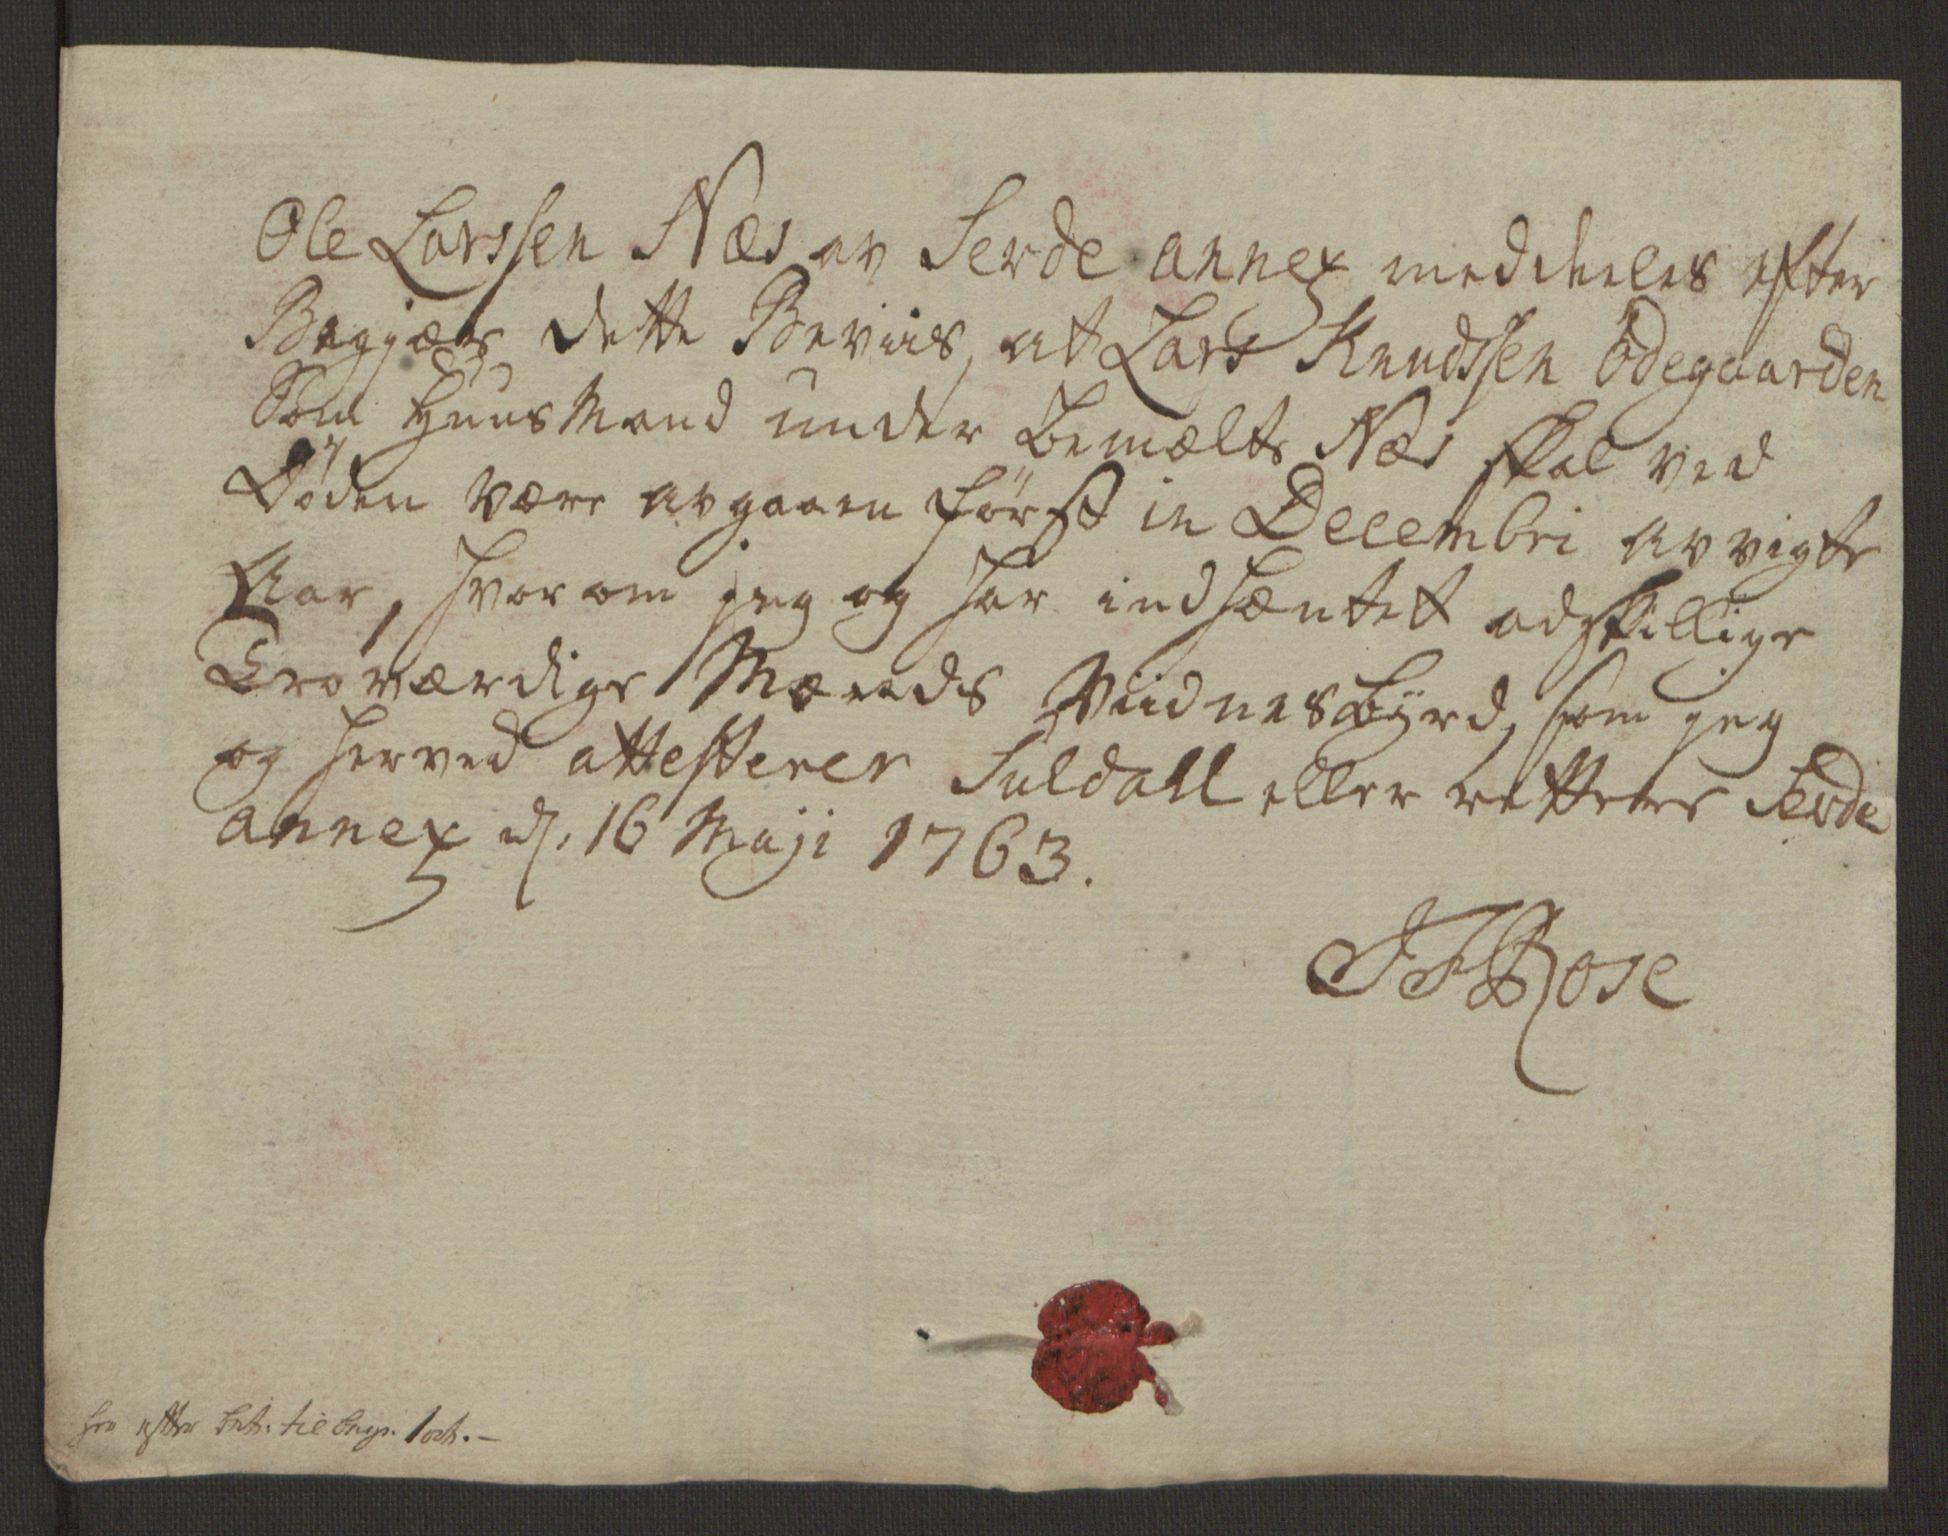 Ole Larssen Næs av Serde annex meddeeles efter
Begjær dette Beviis, at Lars Knudssen Ödegaarden
som Huusmand under bemælte Næs skal ved
Döden være avgaaen först in Decembri avvigte
Aar, hvorom jeg og har indhæntet adskillige
Troværdige Mænds Viidnesbÿrd, som jeg
og herved attesterer Suldall eller rettere Serde
annex d. 16 Maji 1763.
Rose
efter til